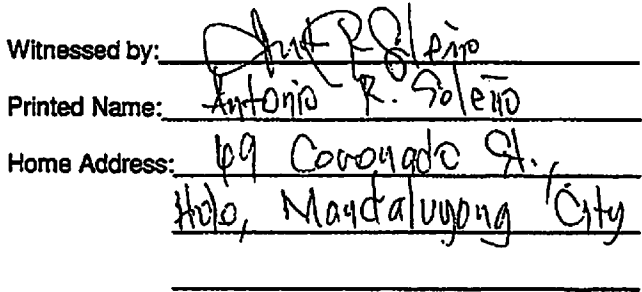 Witnessed by: Ant R Soleño
Printed Name: Antonio R. Soleño
Home Address: 69 Coronado St.,
Hulo, Mandaluyong City